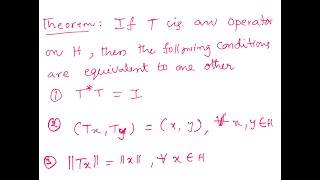 Theorem: If T is an operator
on H, then the following conditions
are equivalent to one other
① T*T = I
② (Tx, Ty) = (x, y), ∀ x, y ∈ H
③ ||Tx|| = ||x||, ∀ x ∈ H